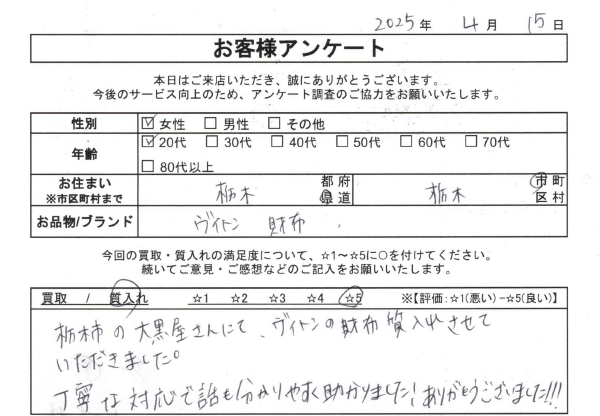 2025年 4月 15日
お客様アンケート
本日はご来店いただき、誠にありがとうございます。
今後のサービス向上のため、アンケート調査のご協力をお願いいたします。
性別 ☑女性 □男性 □その他
年齢 ☑20代 □30代 □40代 □50代 □60代 □70代
□80代以上
お住まい ※市区町村まで 栃木 都府県道 栃木 市町区村
お品物/ブランド ヴィトン 財布
今回の買取・質入れの満足度について、☆1～☆5に○を付けてください。
続いてご意見・ご感想などのご記入をお願いいたします。
買取 / 質入れ ☆1 ☆2 ☆3 ☆4 ☆5 ※【評価：☆1(悪い)－☆5(良い)】
栃木市の大黒屋さんにて、ヴィトンの財布質入れさせて
いただきました。
丁寧な対応で話も分かりやすく助かりました！ありがとうございました!!!